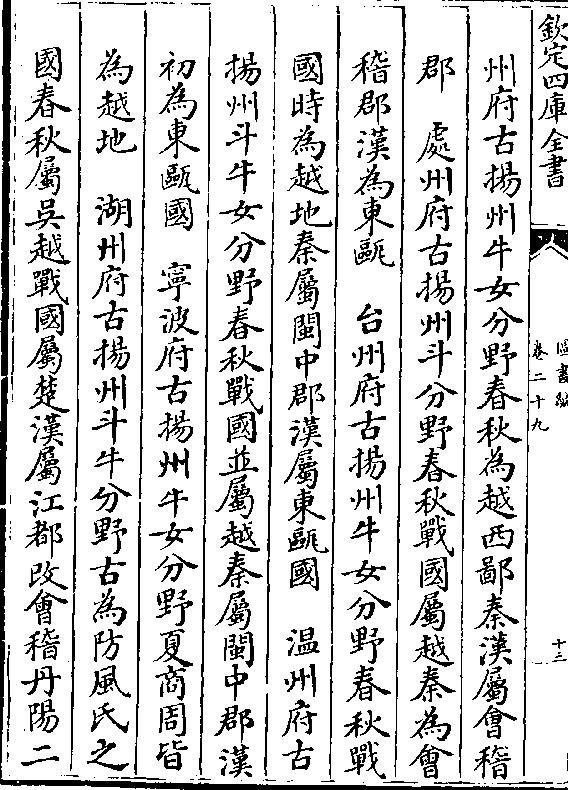 欽定四庫全書
圖書編
卷二十九
十三
州府古揚州牛女分野春秋為越西鄙秦漢屬會稽
郡　處州府古揚州斗分野春秋戰國屬越秦為會
稽郡漢為東甌　台州府古揚州牛女分野春秋戰
國時為越地秦屬閩中郡漢屬東甌國　温州府古
揚州斗牛女分野春秋戰國並屬越秦屬閩中郡漢
初為東甌國　寧波府古揚州牛女分野夏商周皆
為越地　湖州府古揚州斗牛分野古為防風氏之
國春秋屬吳越戰國屬楚漢屬江都改會稽丹陽二